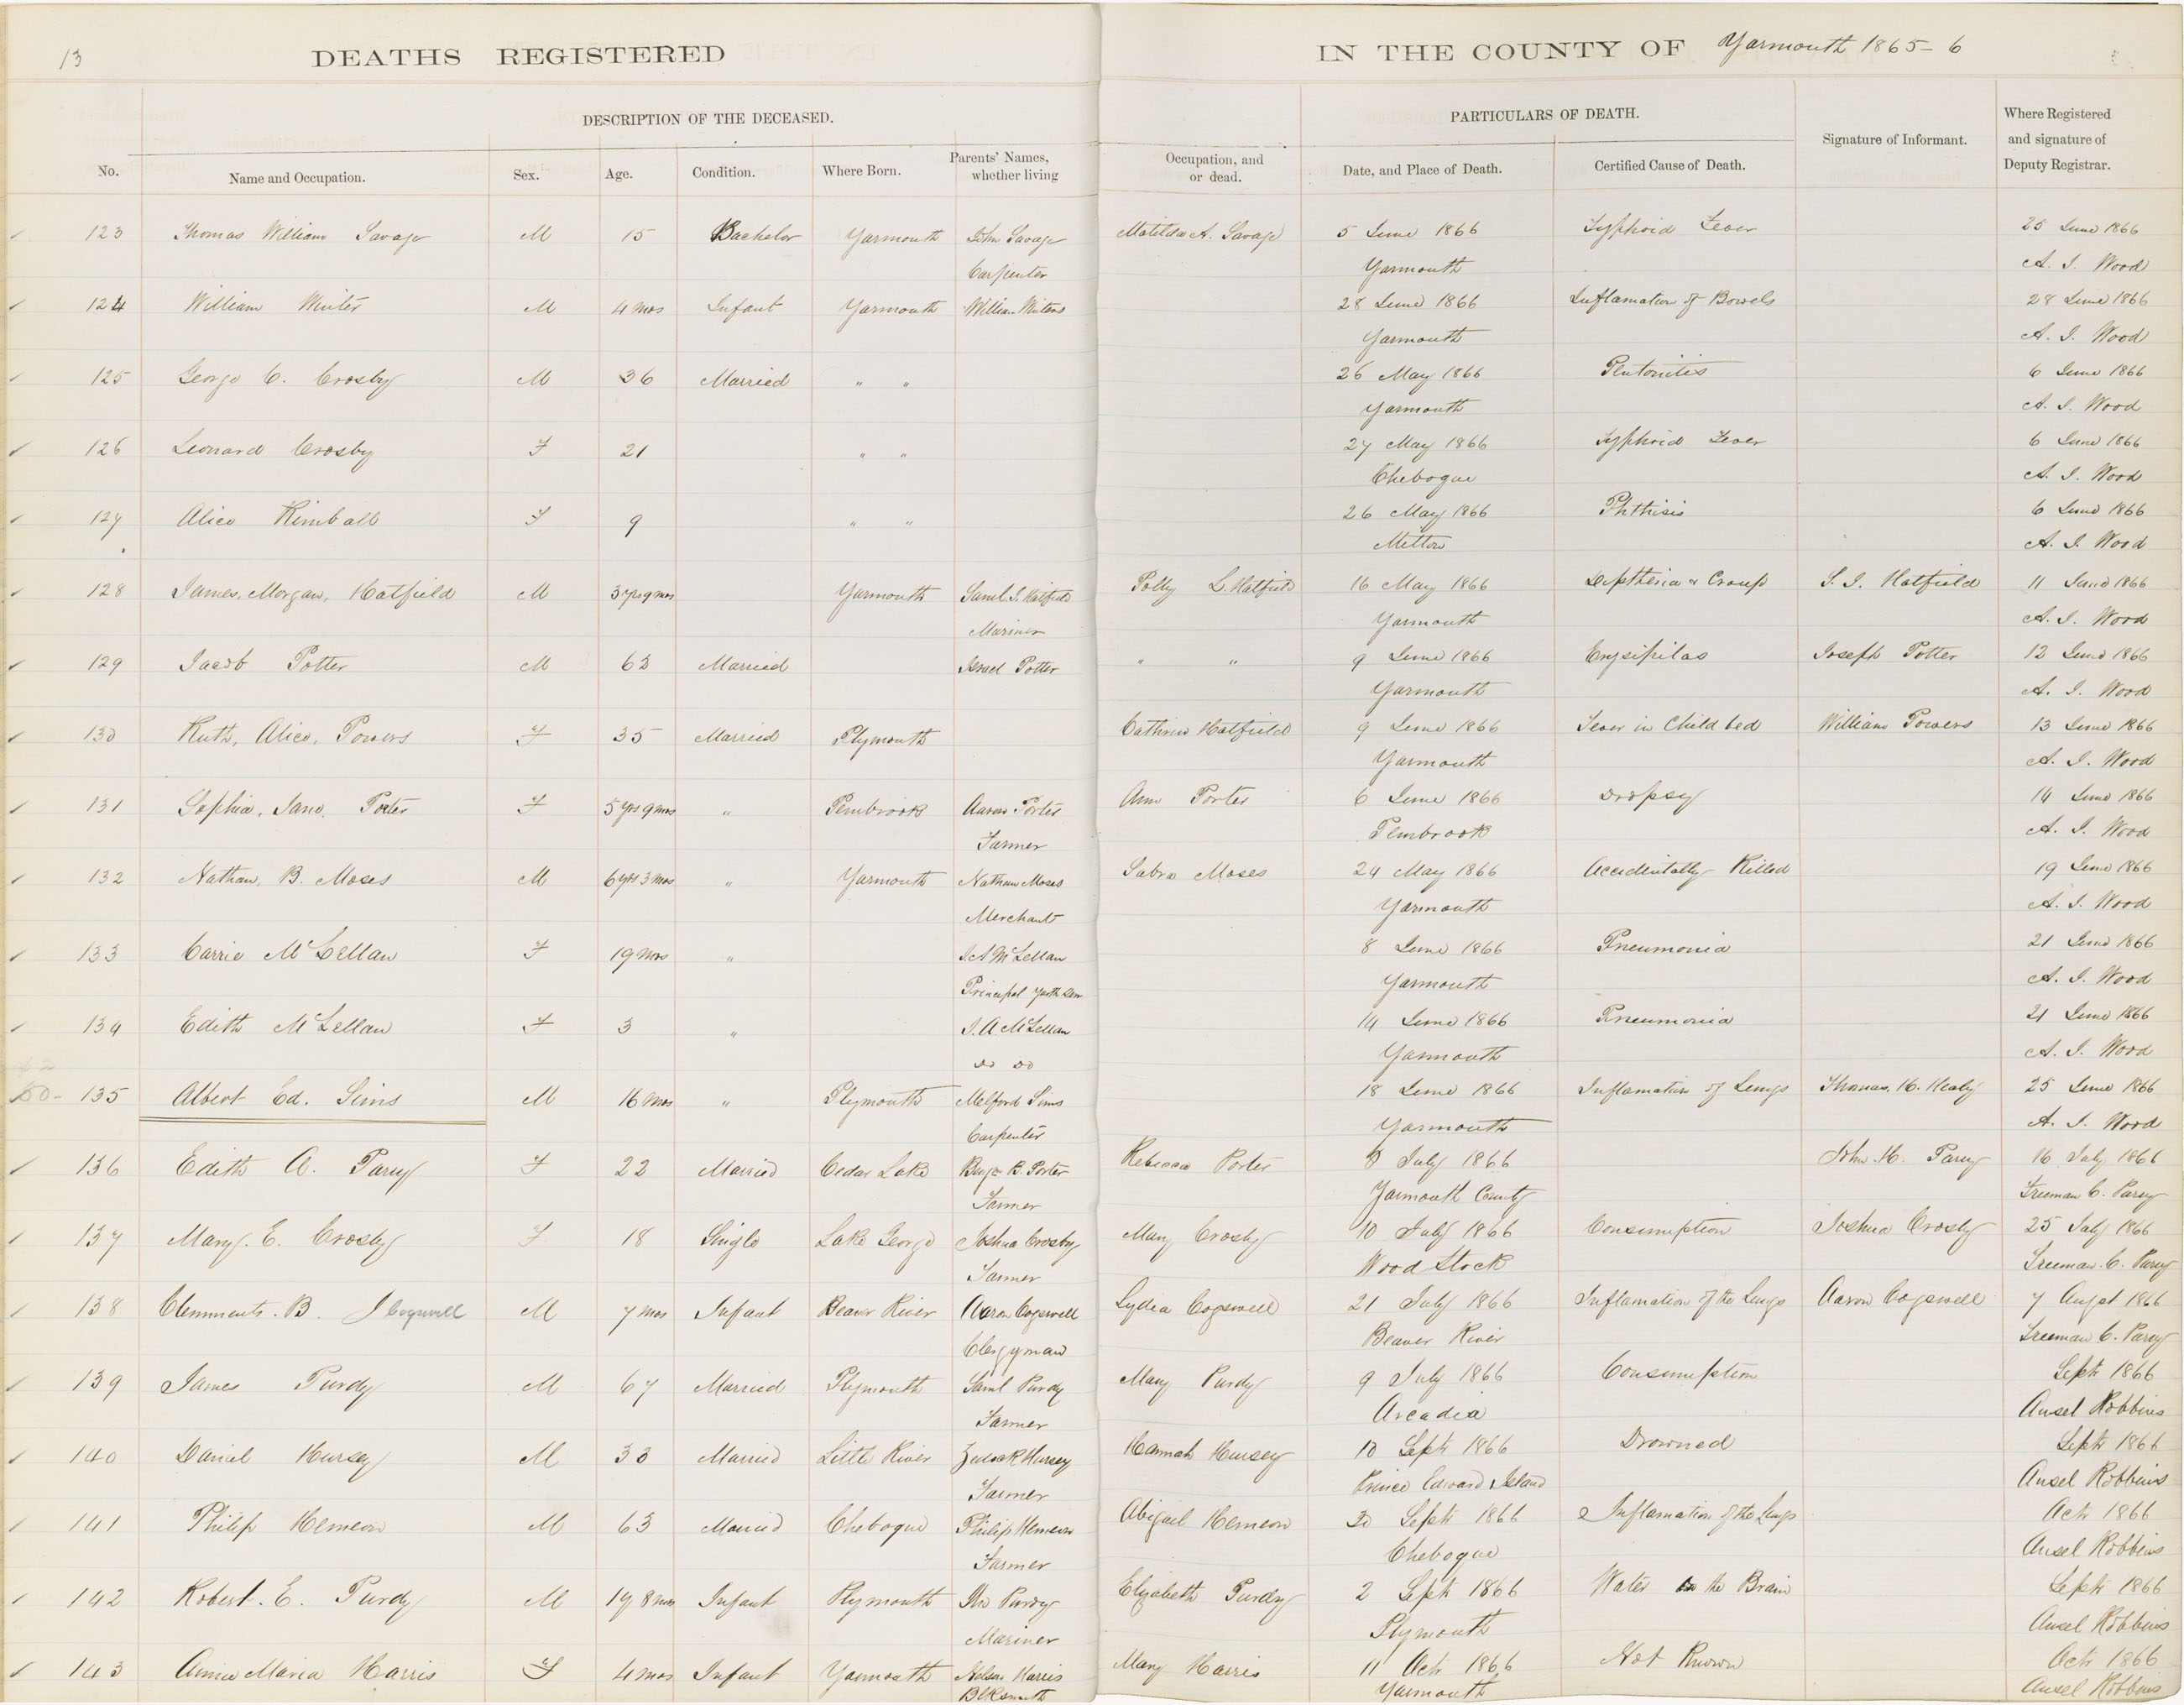 13 DEATHS REGISTERED IN THE COUNTY OF Yarmouth 1865-6
DESCRIPTION OF THE DECEASED. PARTICULARS OF DEATH.
No. Name and Occupation. Sex. Age. Condition. Where Born. Parents' Names, whether living Occupation, and or dead. Date, and Place of Death. Certified Cause of Death. Signature of Informant. Where Registered and signature of Deputy Registrar.
123 Thomas William Savage M 15 Bachelor Yarmouth John Savage Matilda A. Savage 5 June 1866 Typhoid Fever 25 June 1866
Carpenter Yarmouth A. J. Wood
124 William Winter M 4 mos Infant Yarmouth William Winters 28 June 1866 Inflamation of Bowels 28 June 1866
Yarmouth A. J. Wood
125 George C. Crosby M 36 Married " " 26 May 1866 6 June 1866
Yarmouth A. J. Wood
126 Leonard Crosby F 21 " " 27 May 1866 Typhoid Fever 6 June 1866
Chebogue A. J. Wood
127 Alice Kimball F 9 " " 26 May 1866 Phthisis 6 June 1866
A. J. Wood
128 James, Morgan, Hatfield M 3 yrs 9 mos Yarmouth Saml. J. Hatfield Polly L. Hatfield 16 May 1866 Diptheria & Croup S. J. Hatfield 11 June 1866
Mariner Yarmouth A. J. Wood
129 Jacob Potter M 63 Married Israel Potter " " 9 June 1866 Erysipilas Joseph Potter 12 June 1866
Yarmouth A. J. Wood
130 Ruth, Alice, Powers F 35 Married Plymouth Cathrin Hatfield 9 June 1866 Fever in Child bed William Powers 13 June 1866
Yarmouth A. J. Wood
131 Sophia, Jane, Porter F 5 yrs 9 mos " Pembrook Aaron Porter Ann Porter 6 June 1866 Dropsy 14 June 1866
Farmer Pembrook A. J. Wood
132 Nathan, B. Moses M 6 yrs 3 mos " Yarmouth Nathan Moses Sabra Moses 24 May 1866 Accidentally Killed 19 June 1866
Merchant Yarmouth A. J. Wood
133 Carrie McLellan F 19 mos " J A McLellan 8 June 1866 Pneumonia 21 June 1866
Principal Yarmouth A. J. Wood
134 Edith McLellan F 3 " J. A. McLellan 14 June 1866 Pneumonia 21 June 1866
do do Yarmouth A. J. Wood
135 Albert Ed. Sims M 16 mos " Plymouth Melford Sims 18 June 1866 Inflamation of Lungs Thomas. H. Healy 25 June 1866
Carpenter Yarmouth A. J. Wood
136 Edith A. Parry F 22 Married Cedar Lake Benj. R. Porter Rebecca Porter 8 July 1866 John. H. Parry 16 July 1866
Farmer Yarmouth County Freeman C. Parry
137 Mary. E. Crosby F 18 Single Lake George Joshua Crosby Mary Crosby 10 July 1866 Consumption Joshua Crosby 25 July 1866
Farmer Wood Stock Freeman. C. Parry
138 Clemments. B. Cogswell M 7 mos Infant Beaver River Aaron Cogswell Lydia Cogswell 21 July 1866 Inflamation of the Lungs Aaron Cogswell 7 Augst 1866
Clergyman Beaver River Freeman C. Parry
139 James Purdy M 67 Married Plymouth Saml Purdy Mary Purdy 9 July 1866 Consumption Sept 1866
Farmer Arcadia Ansel Robbins
140 Daniel Hursey M 33 Married Little River Zadock Hursey Hannah Hursey 10 Sept 1866 Drowned Sept 1866
Farmer Prince Edward Island Ansel Robbins
141 Philip Hemeon M 63 Married Chebogue Philip Hemeon Abigail Hemeon 30 Sept 1866 Inflamation of the Lungs Oct 1866
Farmer Chebogue Ansel Robbins
142 Robert. E. Purdy M 1 y 8 mos Infant Plymouth Jno Purdy Elizabeth Purdy 2 Sept 1866 Water on the Brain Sept 1866
Mariner Plymouth Ansel Robbins
143 Annie Maria Harris F 4 mos Infant Yarmouth Nelson Harris Mary Harris 11 Oct 1866 Not Known Oct 1866
Blksmith Yarmouth Ansel Robbins